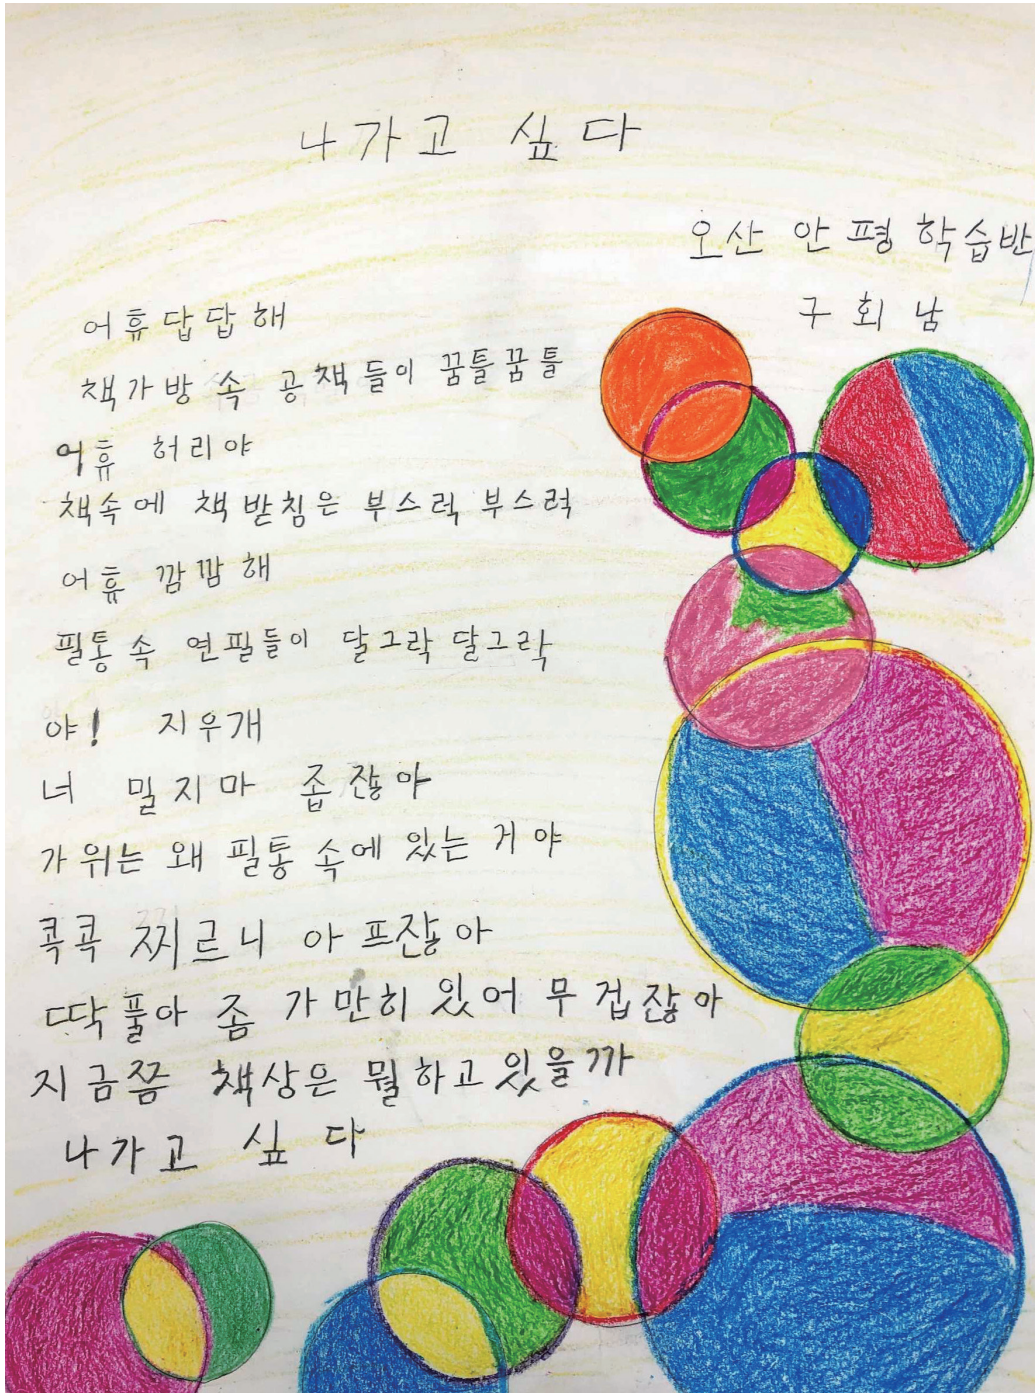 나가고 싶다
오산 안평 학습반
구회남
어휴답답해
책가방 속 공책들이 꿈틀꿈틀
어휴 허리야
책속에 책받침은 부스럭 부스럭
어휴 깜깜해
필통속 연필들이 달그락달그락
야! 지우개
너 밀지마 좁잖아
가위는 왜 필통 속에 있는 거야
콕콕 찌르니 아프잖아
딱풀아 좀 가만히 있어 무겁잖아
지금쯤 책상은 뭘하고 있을까
나가고 싶다